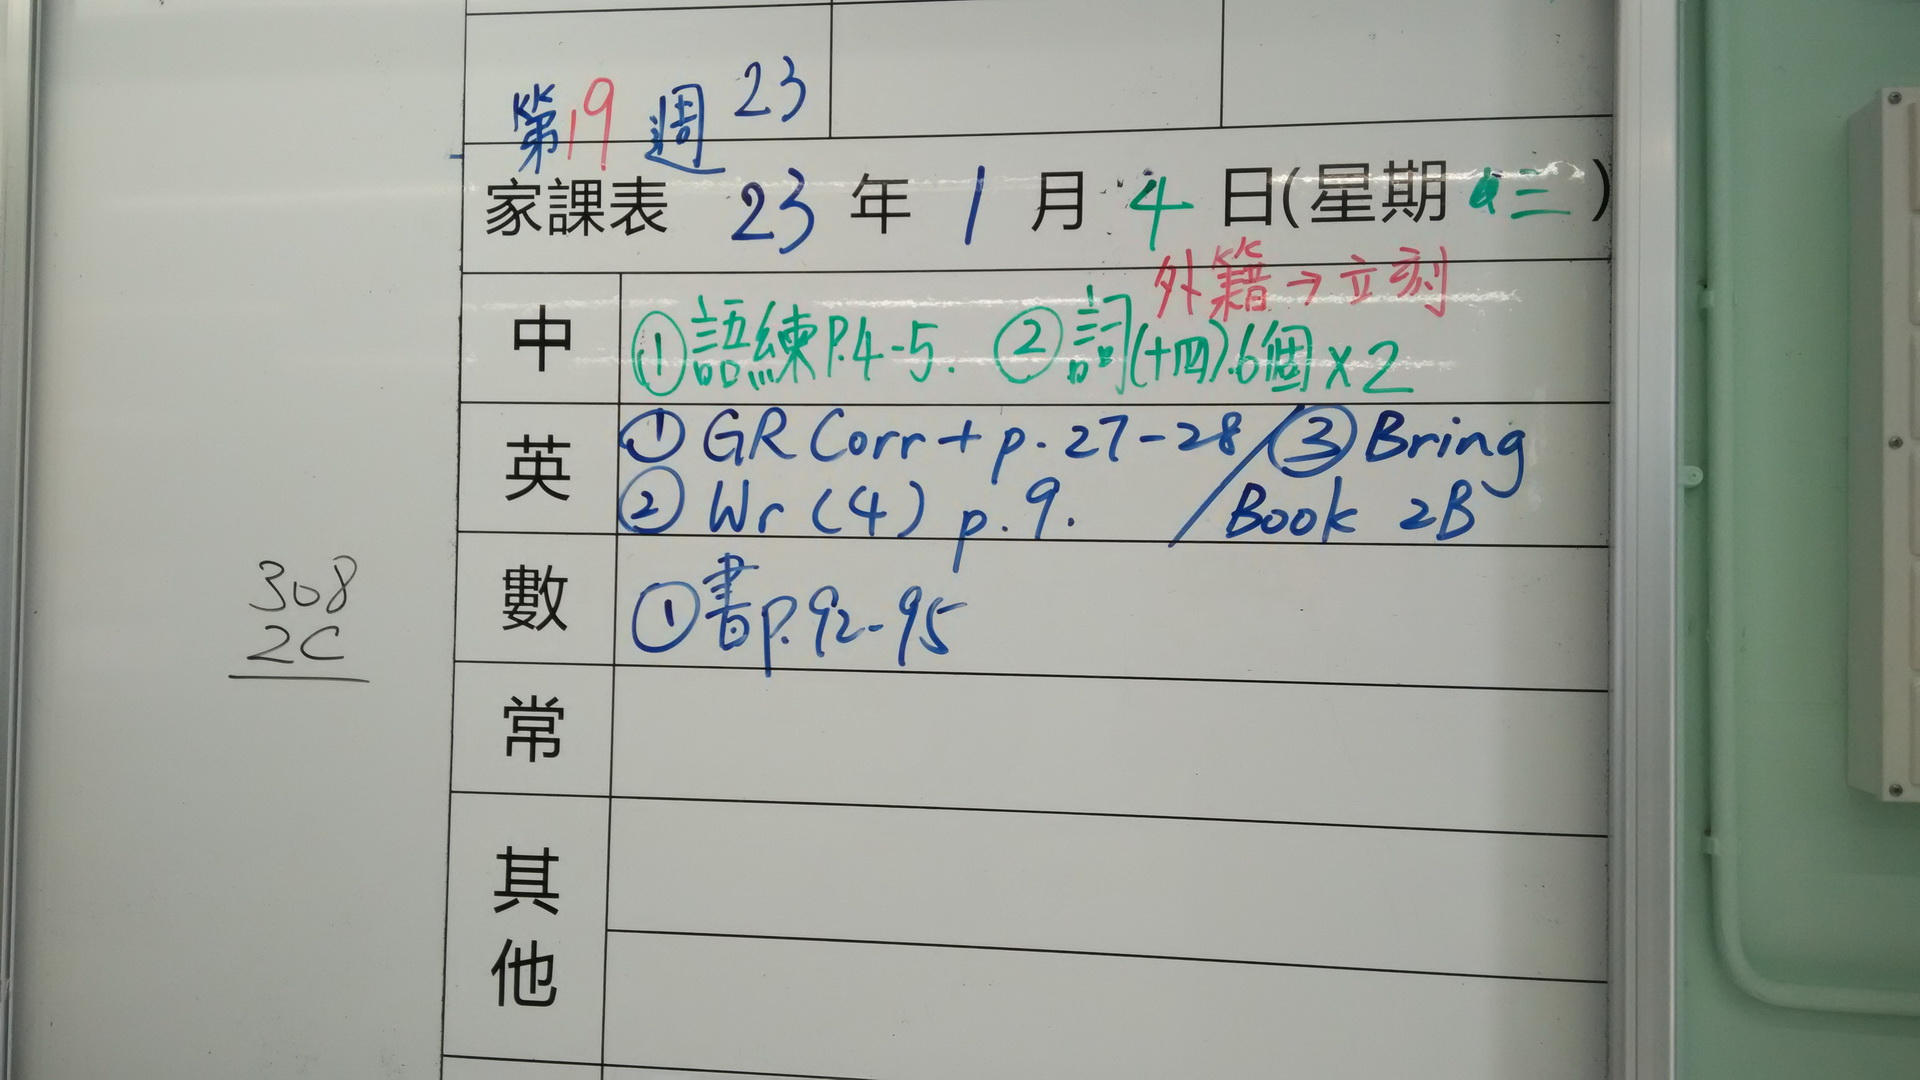 第19週 23
家課表 23 年 1 月 4 日(星期三)
外籍→立刻
中 ①語練P.4-5. ②詞(十四).6個x2
英 ① GR Corr + p.27-28 / ③ Bring
② Wr (4) p.9. / Book 2B
數 ①書p.92-95
常
其他
308
2C